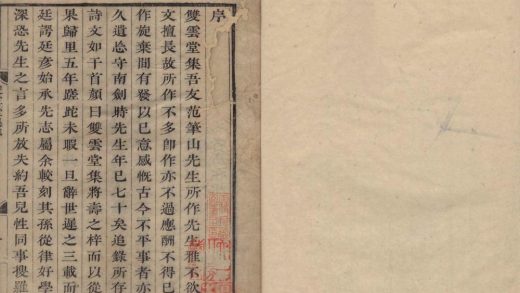 序
雙雲堂集吾友范筆山先生所作先生雅不欲
文擅長故所作不多即作亦不過應酬不得已
作旋棄間有發以已意感慨古今不平事者亦
久遺忘守南劍時先生年已七十矣追錄所存
詩文如干首顏曰雙雲堂集將壽之梓而以從
果歸里五年蹉跎未暇一旦辭世遲之三載而
廷諤廷彥始承先志屬余較刻其孫從律好學
深恐先生之言多所放失約吾兒性同事搜羅